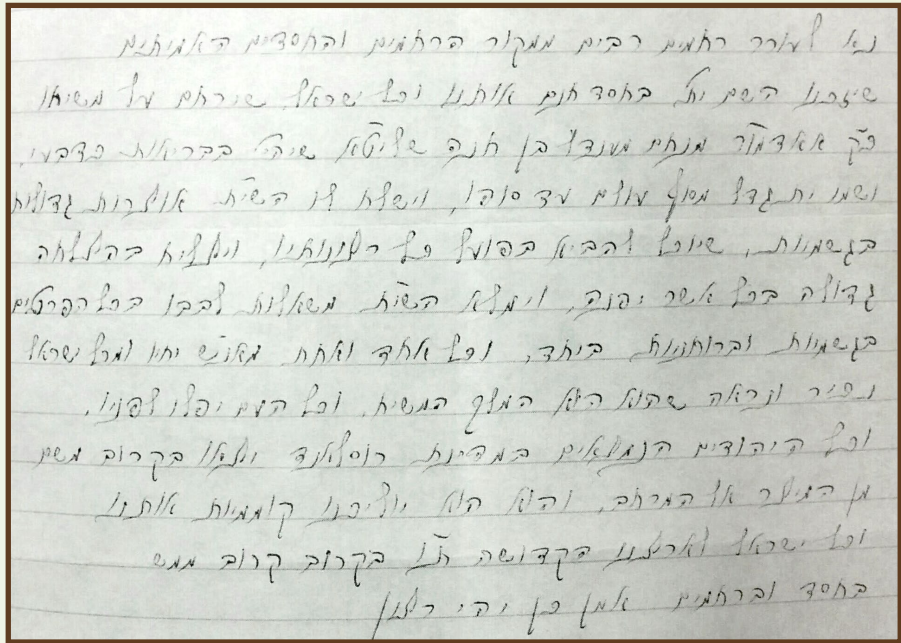 נא לעורר רחמים רבים ממקור הרחמים והחסדים האמיתים
שיזכנו השם ית' בחסד חנם אותנו וכל ישראל, שירחם על משיחו
כ"ק אאדמו"ר מנחם מענדל בן חנה שליט"א שיהי' בבריאות כדבעי,
ושמו יתגדל מסוף עולם עד סופו, וישלח לו השי"ת אוצרות גדולות
בגשמיות, שיוכל להביא בפועל כל רצונותיו, ויצליח בהצלחה
גדולה בכל אשר יפנה, וימלא השי"ת משאלות לבבו בכל הפרטים
בגשמיות וברוחניות ביחד, וכל אחד ואחת מאנ"ש יחיו ומכל ישראל
נכיר ונראה שהוא הוא המלך המשיח, וכל העם יפלו לפניו.
וכל היהודים הנמצאים במדינת רוסלאנד יצאו בקרוב משם
מן המיצר אל המרחב, והוא הוא יוליכנו קוממיות אותנו
וכל ישראל לארצנו הקדושה ת"ו בקרוב קרוב ממש
בחסד וברחמים אמן כן יהי רצון